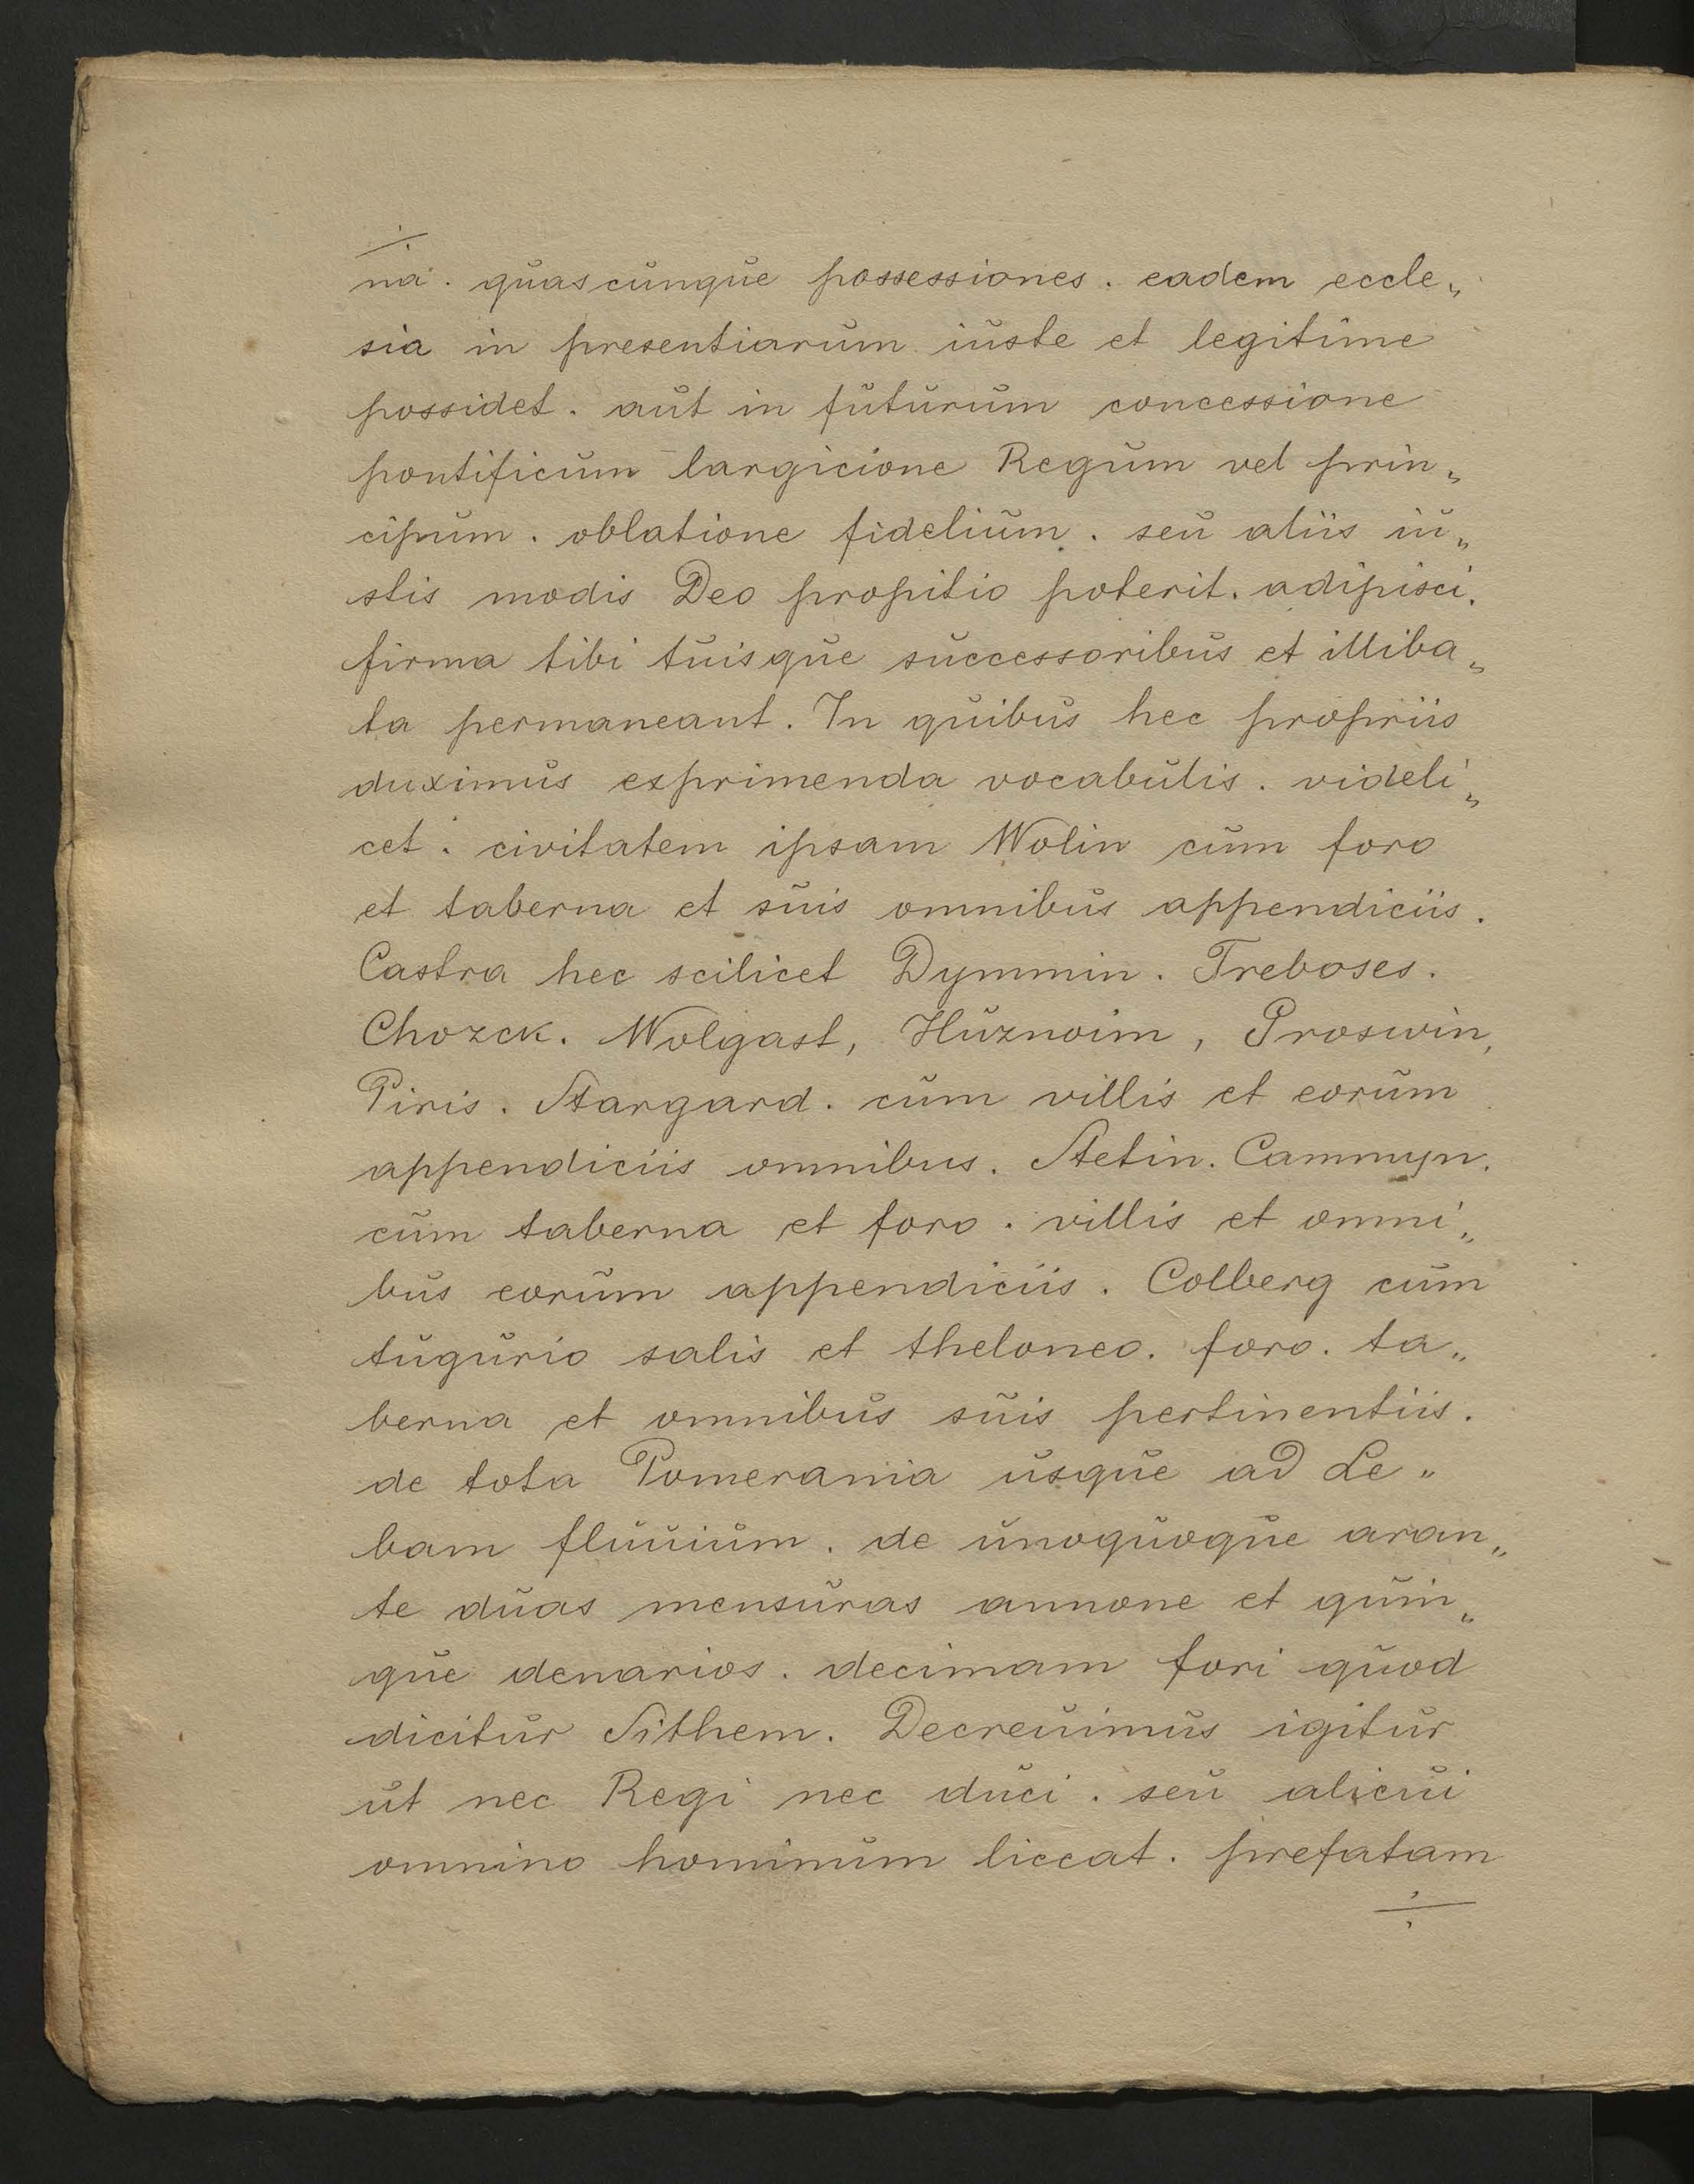 na. quascunque possessiones. eadem eccle„
sia in presentiarum iuste et legitime
possidet. aut in futurum concessione
pontificum largicione Regum vel prin„
cipum. oblatione fidelium. seu aliis iu„
stis modis Deo propitio poterit. adipisci.
firma tibi tuisque successoribus et illiba„
ta permaneant. In quibus hec propriis
duximus exprimenda vocabulis. videli„
cet. civitatem ipsam Wolin cum foro
et taberna et suis omnibus appendiciis.
Castra hec scilicet Dymmin. Treboses.
Chozck. Wolgast, Huznoim, Groswin,
Piris. Stargard. cum villis et eorum
appendiciis omnibus. Stetin. Cammyn.
cum taberna et foro. villis et omni„
bus eorum appendiciis. Colberg cum
tugurio salis et theloneo. foro. ta„
berna et omnibus suis pertinentiis.
de tota Pomerania usque ad Le„
bam fluuium. de unoquoque aran„
te duas mensuras annone et quin„
que denarios. decimam fori quod
dicitur Sithem. Decreuimus igitur
ut nec Regi nec duci. seu alicui
omnino hominum liceat. prefatam